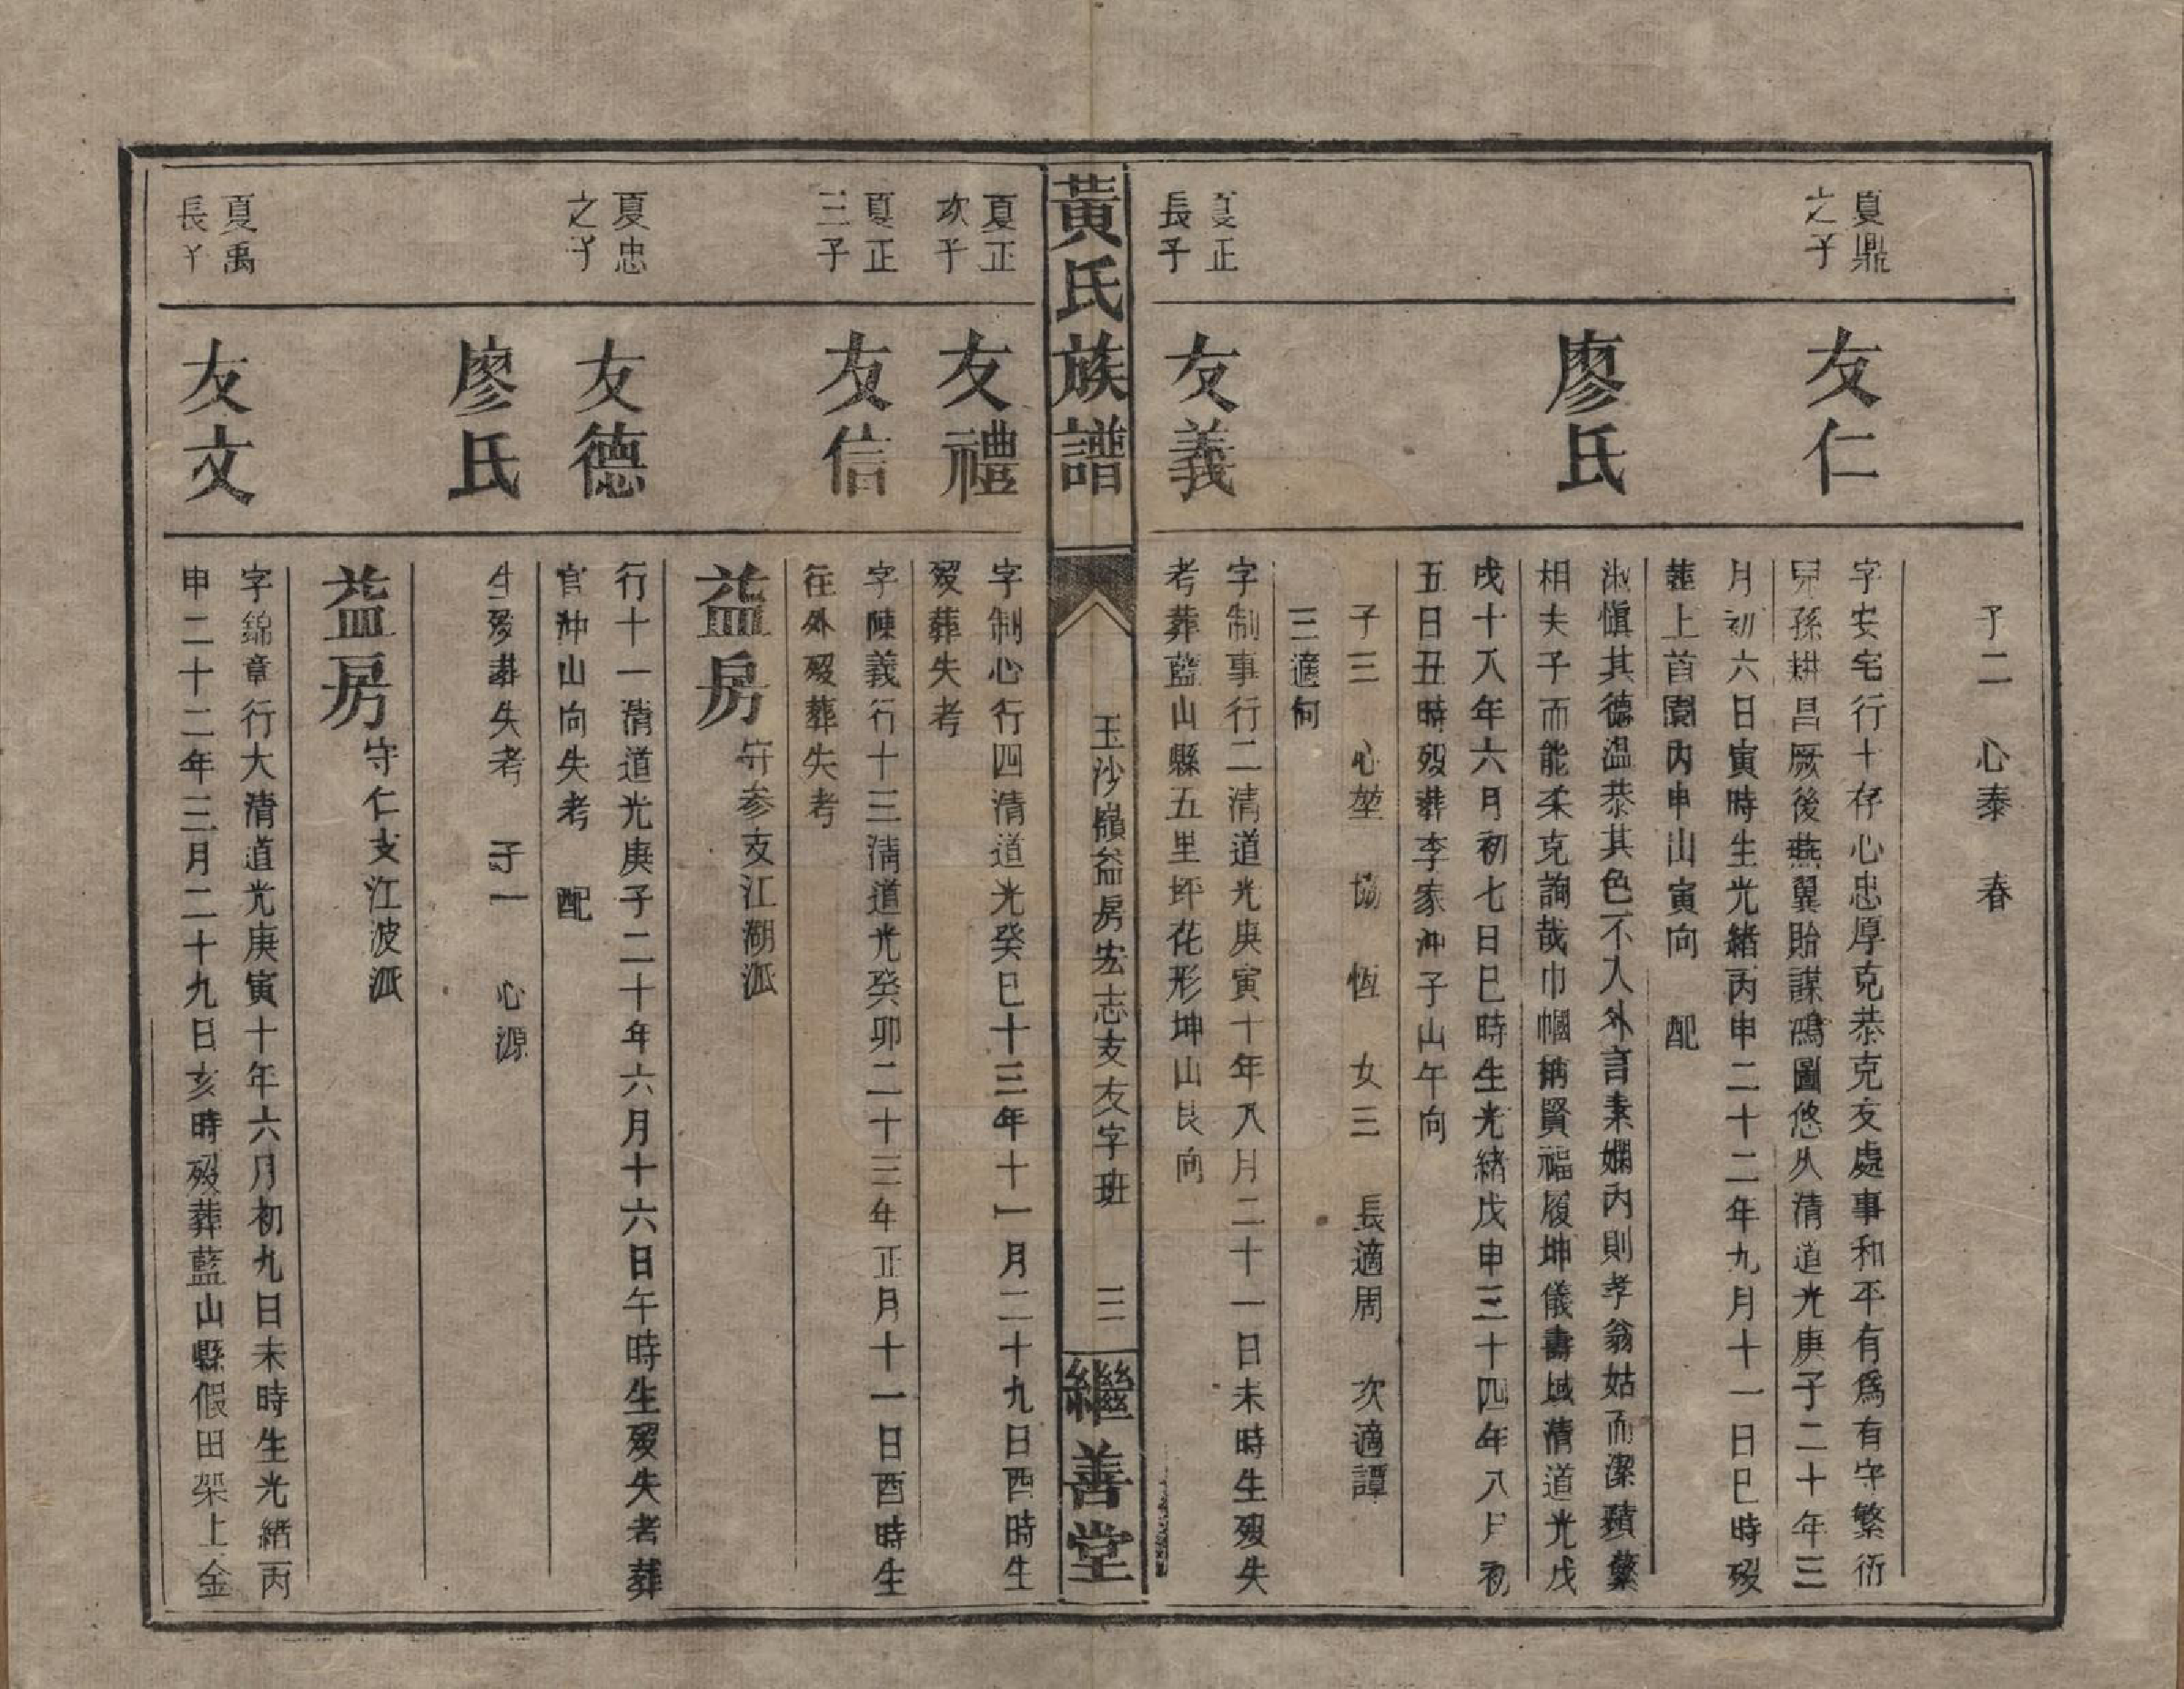 子二 心泰 春
夏鼎
之子
友仁
字安宅行十存心忠厚克恭克友處事和平有爲有守繁衍
兒孫耕昌厥後燕翼貽謀鴻圖悠久清道光庚子二十年三
月初六日寅時生光緒丙申二十二年九月十一日巳時歿
葬上首園內申山寅向 配
廖氏
淑愼其德温恭其色不入外言素嫻內則孝翁姑而潔蘋蘩
相夫子而能柔克詢哉巾幗稱賢福履坤儀壽域清道光戊
戌十八年六月初七日巳時生光緒戊申三十四年八月初
五日丑時歿葬李家冲子山午向
子三 心堃 協 恆 女三 長適周 次適譚
三適何
夏正
長子
友義
字制事行二清道光庚寅十年八月二十一日未時生歿失
考葬藍山縣五里坪花形坤山艮向
黃氏族譜
玉沙嶺益房宏志支友字班
三
繼善堂
夏正
次子
友禮
字制心行四清道光癸巳十三年十一月二十九日酉時生
歿葬失考
夏正
三子
友信
字陳義行十三清道光癸卯二十三年正月十一日酉時生
往外歿葬失考
益房守參支江湖派
夏忠
之子
友德
行十一清道光庚子二十年六月十六日午時生歿失考葬
官冲山向失考 配
廖氏
生歿葬失考 子一 心源
益房守仁支江波派
夏禹
長子
友文
字錦章行大清道光庚寅十年六月初九日未時生光緒丙
申二十二年三月二十九日亥時歿葬藍山縣假田架上金